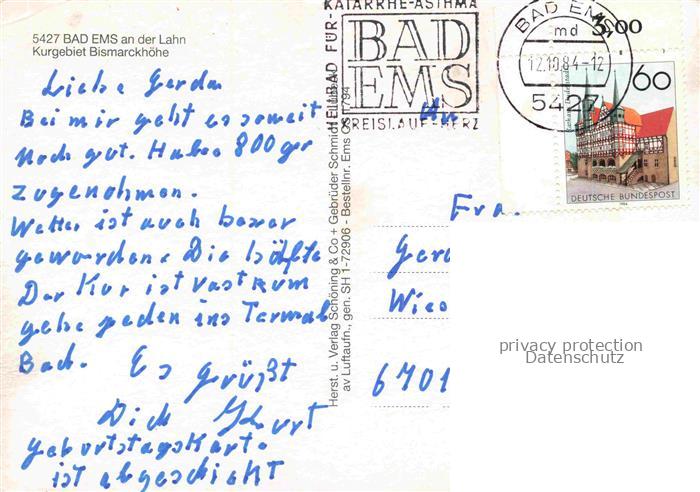 5427 BAD EMS an der Lahn
Kurgebiet Bismarckhöhe
Liebe Gerda
Bei mir geht es soweit
noch gut. Habe 800 gr
zugenohmen.
Wetter ist auch besser
geworden. Die hälfte
Der Kur ist rast rum
gehe jeden ins Termal
Bad. Es grüßt
Dich
geburtstagskarte
ist abgeschickt
Herst. u. Verlag Schöning & Co + Gebrüder Schmidt
av Luftaufn., gen. SH 1-72906 - Bestellnr. Ems 794
HEILBAD FÜR-
KATARRHE-ASTHMA
BAD
EMS
KREISLAUF-HERZ
BAD EMS
md
12.10.84-12
5427
60
DEUTSCHE BUNDESPOST
1984
An
Fra
Gerd
Wies
6701
privacy protection
Datenschutz